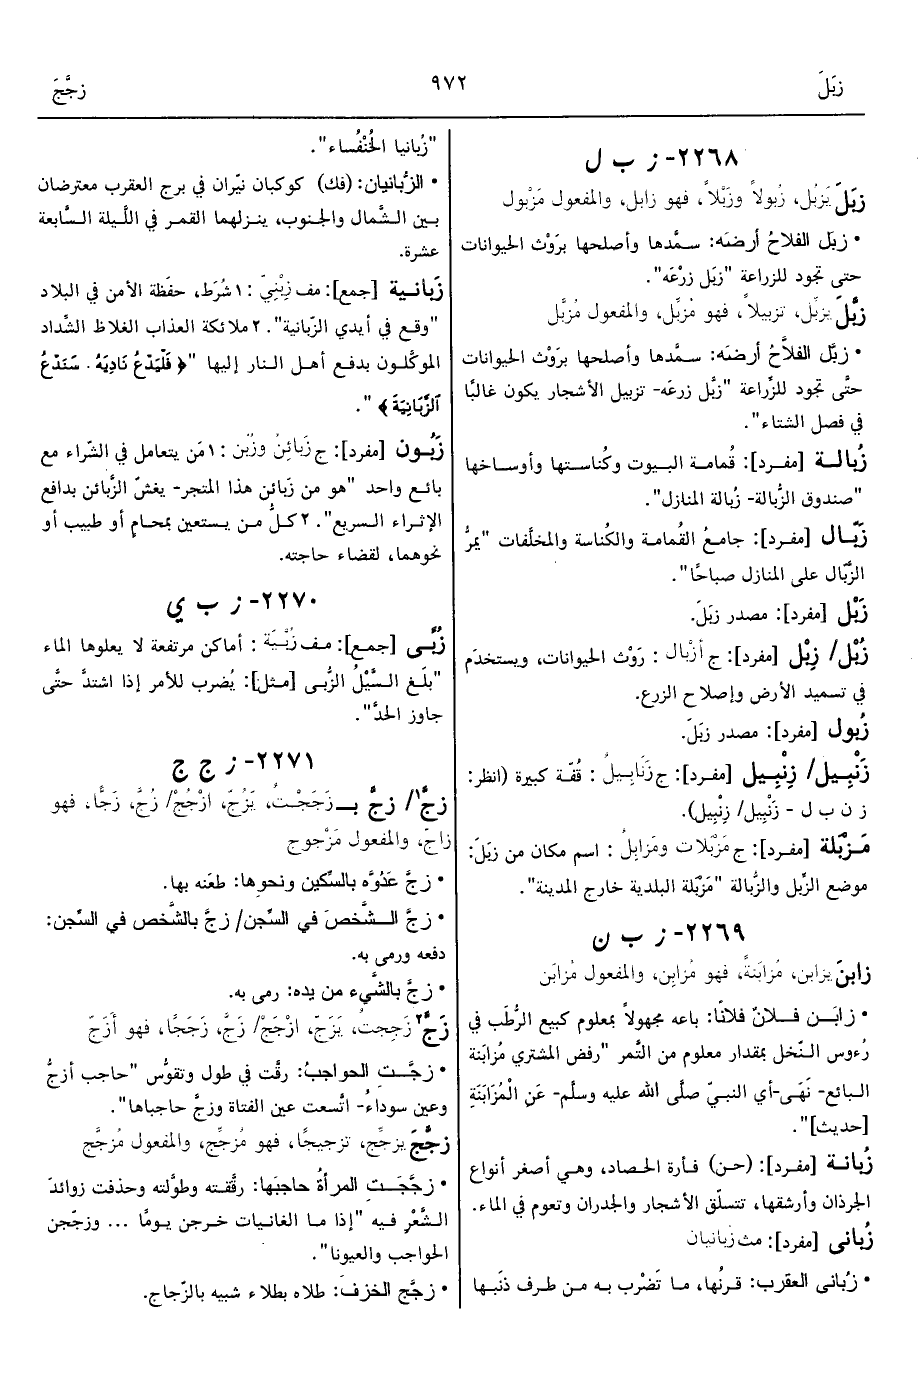 زبَلَ
٩٧٢
زجَّجَ
٢٢٦٨- ز ب ل
زبَلَ يَزبُل، زُبولاً وزَبْلاً، فهو زابل، والمفعول مَزْبول
• زبَل الفلاحُ أرضَه: سمَّدها وأصلحها برَوْث الحيوانات
حتى تجود للزراعة "زبَل زرْعَه".
زبَّلَ يزبِّل، تزبيلاً، فهو مُزبِّل، والمفعول مُزبَّل
• زبَّل الفلاَّحُ أرضَه: سمَّدها وأصلحها برَوْث الحيوانات
حتَّى تجود للزِّراعة "زبَّل زرعَه- تزبيل الأشجار يكون غالبًا
في فصل الشتاء".
زُبالة [مفرد]: قُمامة البيوت وكُناستها وأوساخها
"صندوق الزُّبالة- زبالة المنازل".
زبّال [مفرد]: جامعُ القُمامة والكُناسة والمخلَّفات "يمرُّ
الزّبّال على المنازل صباحًا".
زَبْل [مفرد]: مصدر زبَلَ.
زُبْل/ زِبْل [مفرد]: ج أزْبال : رَوْث الحيوانات، ويستخدَم
في تسميد الأرض وإصلاح الزرع.
زُبول [مفرد]: مصدر زبَلَ.
زَنْبيل/ زِنْبيل [مفرد]: ج زَنَابِيلُ : قُفّة كبيرة (انظر:
ز ن ب ل - زَنْبيل/ زِنْبيل).
مَزبْلة [مفرد]: ج مَزْبَلات ومَزابِلُ : اسم مكان من زبَلَ:
موضع الزِّبل والزُّبالة "مَزبْلة البلدية خارج المدينة".
٢٢٦٩- ز ب ن
زابنَ يزابن، مُزابَنةً، فهو مُزابِن، والمفعول مُزابَن
• زابَن فلانٌ فلانًا: باعه مجهولاً بمعلوم كبيع الرُّطَب في
رُءوس النّخل بمقدار معلوم من التَّمر "رفض المشتري مُزابَنة
البائع- نَهَى-أي النبيّ صلَّى الله عليه وسلَّم- عَنِ الْمُزَابَنَةِ
[حديث]".
زُبانة [مفرد]: (حن) فأرة الحصاد، وهي أصغر أنواع
الجرذان وأرشقها، تتسلّق الأشجار والجدران وتعوم في الماء.
زُبانى [مفرد]: مث زُبانيان
• زُبانى العقرب: قرنُها، ما تَضْرب به من طرف ذنَبها
"زُبانيا الخُنْفُساء".
• الزُّبانيان: (فك) كوكبان نيّران في برج العقرب معترضان
بين الشَّمال والجنوب، ينزلهما القمر في اللّيلة السَّابعة
عشرة.
زَبانية [جمع]: مف زِبْنيّ : ١ شُرَط، حفَظة الأمن في البلاد
"وقع في أيدي الزّبانية". ٢ ملائكة العذاب الغلاظ الشَّداد
الموكَّلون بدفع أهل النار إليها "﴿ فَلْيَدْعُ نَادِيَهُ . سَنَدْعُ
الزَّبَانِيَةَ ﴾ ".
زَبُون [مفرد]: ج زَبائِنُ وزُبُن : ١ مَن يتعامل في الشّراء مع
بائع واحد "هو من زَبائن هذا المتجر- يغشّ الزَّبائن بدافع
الإثراء السريع". ٢ كلُّ من يستعين بمحامٍ أو طبيب أو
نحوهما، لقضاء حاجته.
٢٢٧٠- ز ب ي
زُبًى [جمع]: مف زُبْيَة : أماكن مرتفعة لا يعلوها الماء
"بلَغ السَّيْلُ الزُّبى [مثل]: يُضرب للأمر إذا اشتدَّ حتَّى
جاوز الحدَّ".
٢٢٧١- ز ج ج
زجَّ١/ زجَّ بـ زَجَجْتُ، يَزُجّ، ازْجُجْ/ زُجَّ، زَجًّا، فهو
زاجّ، والمفعول مَزْجوج
• زجَّ عَدُوَّه بالسّكين ونحوها: طعَنه بها.
• زجَّ الشَّخصَ في السِّجن/ زجَّ بالشَّخص في السِّجن:
دفعه ورمى به.
• زجَّ بالشَّيء من يده: رمى به.
زَجَّ٢ زَجِجتُ، يَزَجّ، ازْجَجْ/ زَجَّ، زَجَجًا، فهو أزَجّ
• زجَّت الحواجبُ: رقَّت في طول وتقوُّس "حاجب أزجُّ
وعين سوداءُ- اتَّسعت عين الفتاة وزجَّ حاجباها".
زجَّجَ يزجِّج، تزجيجًا، فهو مُزجِّج، والمفعول مُزجَّج
• زجَّجَت المرأةُ حاجبَها: رقَّقته وطوَّلته وحذفت زوائدَ
الشَّعْرِ فيه "إذا ما الغانيات خرجن يومًا ... وزجّجن
الحواجب والعيونا".
• زجَّج الخزفَ: طلاه بطلاء شبيه بالزّجاج.